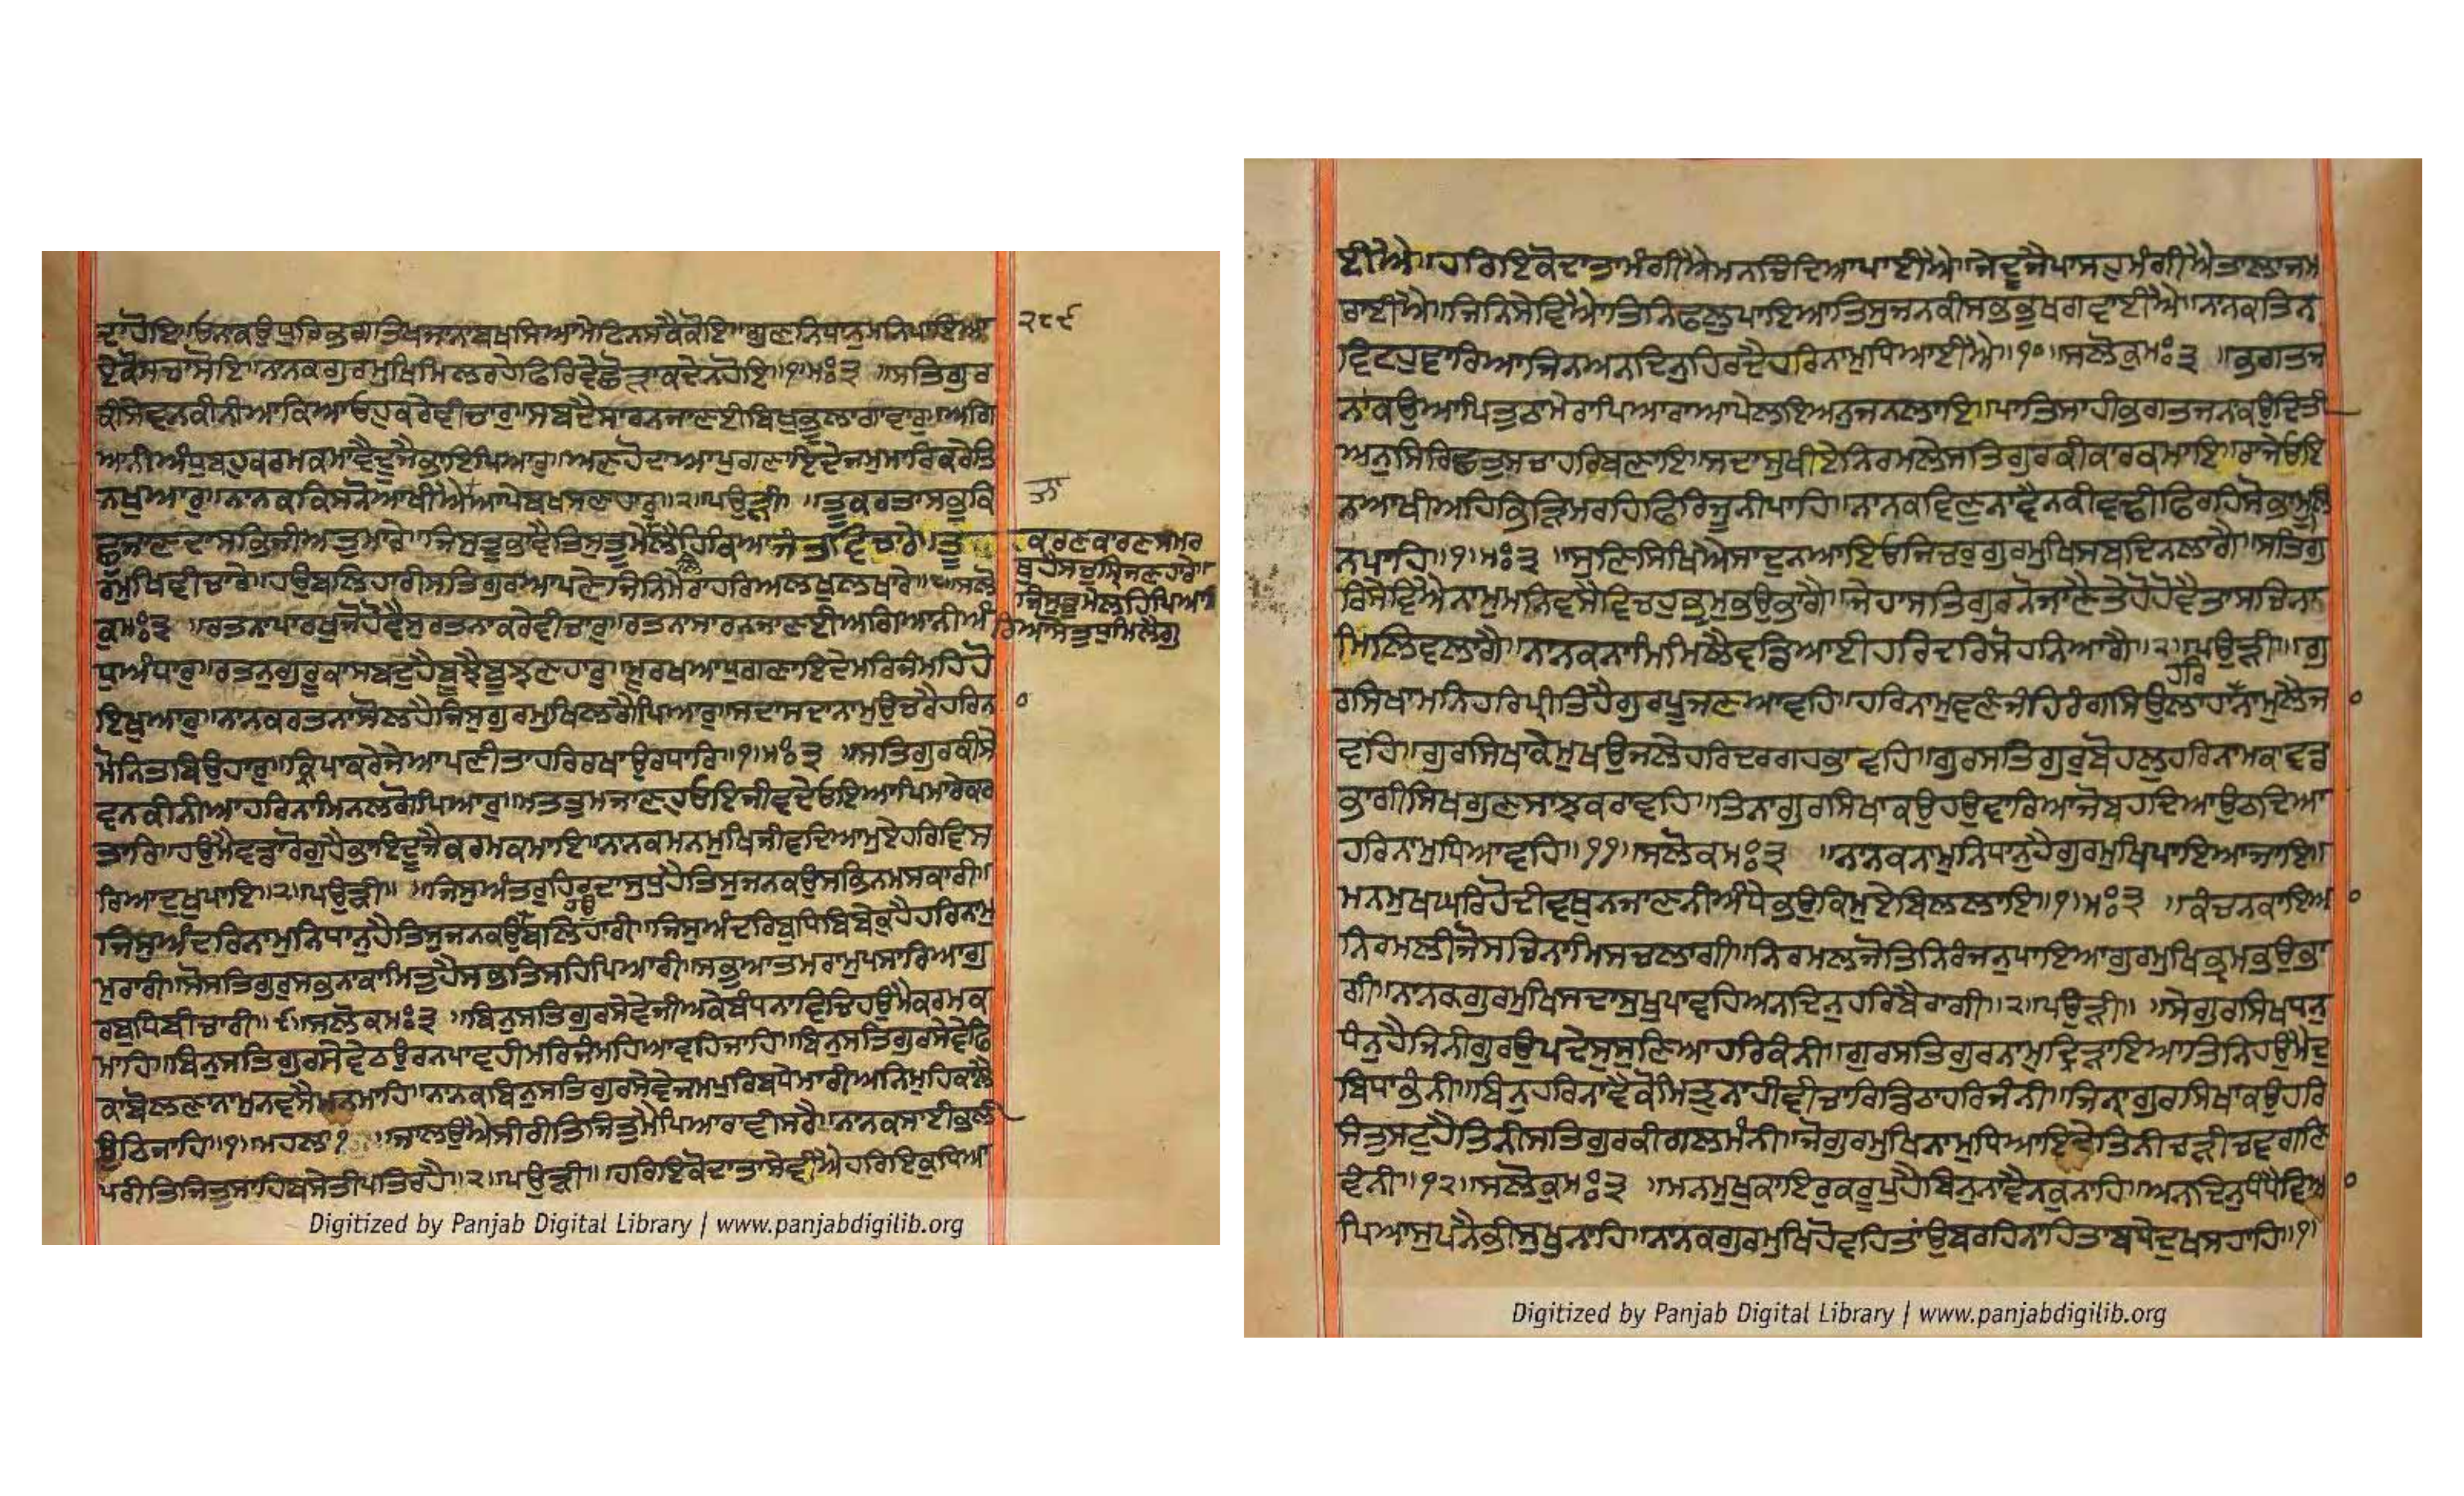 ਦਾਹੋਇ॥ਓਨਕਉਧੁਰਿਭਗਤਿਖਜਾਨਾਬਖਸਿਆਮੇਟਿਨਸਕੈਕੋਇ॥ਗੁਣਨਿਧਾਨੁਮਨਿਪਾਇਆ
ਏਕੋਸਚਾਸੋਇ॥ਨਾਨਕਗੁਰਮੁਖਿਮਿਲਰਹੇਫਿਰਿਵਿਛੋੜਾਕਦੇਨਹੋਇ॥੧॥ਮਃ੩ ॥ਸਤਿਗੁਰ
ਕੀਸੇਵਨਕੀਨੀਆਕਿਆਓਹੁਕਰੇਵੀਚਾਰੁ॥ਸਬਦੈਸਾਰਨਜਾਣਈਬਿਖੁਭੂਲਾਗਾਵਾਰੁ॥ਅਗਿ
ਆਨੀਅੰਧੁਬਹੁਕਰਮਕਮਾਵੈਦੂਜੈਭਾਇਪਿਆਰੁ॥ਅਣਹੋਦਾਆਪੁਗਣਾਇਦੇਜਮੁਮਾਰਿਕਰੇਤਿ
ਨਖੁਆਰੁ॥ਨਾਨਕਕਿਸਨੋਆਖੀਐਆਪੇਬਖਸਣਹਾਰੁ॥੨॥ਪਉੜੀ॥ ॥ਤੂਕਰਤਾਸਭੁਕਿ
ਛੁਜਾਣਦਾਸਭਿਜੀਅਤੁਮਾਰੇ॥ਜਿਸੁਤੂਭਾਵੈਤਿਸੁਤੂਮੇਲੈਹਿਕਿਆਜੰਤਵਿਚਾਰੇ॥ਤੂ
ਰਮੁਖਿਵੀਚਾਰੇ॥ਹਉਬਲਿਹਾਰੀਸਤਿਗੁਰਆਪਣੇਜਿਨਿਮੇਰਾਹਰਿਅਲਖੁਲਖਾਰੇ॥੮॥ਸਲੋ
ਕੁਮਃ੩ ॥ਰਤਨਾਪਾਰਖੁਜੋਹੋਵੈਸੁਰਤਨਾਕਰੇਵੀਚਾਰੁ॥ਰਤਨਾਸਾਰਨਜਾਣਈਅਗਿਆਨੀਅੰ
ਧੁਅੰਧਾਰੁ॥ਰਤਨੁਗੁਰੂਕਾਸਬਦੁਹੈਬੂਝੈਬੂਝਣਹਾਰੁ॥ਮੂਰਖਆਪੁਗਣਾਇਦੇਮਰਿਜੰਮਹਿਹੋ
ਇਖੁਆਰੁ॥ਨਾਨਕਰਤਨਾਸੋਲਹੈਜਿਸੁਗੁਰਮੁਖਿਲਗੈਪਿਆਰੁ॥ਸਦਾਸਦਾਨਾਮੁਉਚਰੈਹਰਿਨਾ
ਮੋਨਿਤਬਿਉਹਾਰੁ॥ਕ੍ਰਿਪਾਕਰੇਜੇਆਪਣੀਤਾਹਰਿਰਖਾਉਰਧਾਰਿ॥੧॥ਮਃ੩ ॥ਸਤਿਗੁਰਕੀਸੇ
ਵਨਕੀਨੀਆਹਰਿਨਾਮਿਨਲਗੋਪਿਆਰੁ॥ਮਤਤੁਮਜਾਣਹੁਓਇਜੀਵਦੇਓਇਆਪਿਮਾਰੇਕਰ
ਤਾਰਿ॥ਹਉਮੈਵਡਾਰੋਗੁਹੈਭਾਇਦੂਜੈਕਰਮਕਮਾਇ॥ਨਾਨਕਮਨਮੁਖਿਜੀਵਦਿਆਮੁਏਹਰਿਵਿਸ
ਰਿਆਦੁਖੁਪਾਇ॥੨॥ਪਉੜੀ॥ ॥ਜਿਸੁਅੰਤਰੁਹਿਰਦਾਸੁਧੁਹੈਤਿਸੁਜਨਕਉਸਭਿਨਮਸਕਾਰੀ॥
ਜਿਸੁਅੰਦਰਿਨਾਮੁਨਿਧਾਨੁਹੈਤਿਸੁਜਨਕਉਬਲਿਹਾਰੀ॥ਜਿਸੁਅੰਦਰਿਬੁਧਿਬਿਬੇਕੁਹੈਹਰਿਨਾਮੁ
ਮੁਰਾਰੀ॥ਸੋਸਤਿਗੁਰੁਸਭਨਾਕਾਮਿਤੁਹੈਸਭਤਿਸਹਿਪਿਆਰੀ॥ਸਭੁਆਤਮਰਾਮੁਪਸਾਰਿਆਗੁ
ਰਬੁਧਿਬੀਚਾਰੀ॥੯॥ਸਲੋਕਮਃ੩ ॥ਬਿਨੁਸਤਿਗੁਰਸੇਵੇਜੀਅਕੇਬੰਧਨਾਵਿਚਿਹਉਮੈਕਰਮਕ
ਮਾਹਿ॥ਬਿਨੁਸਤਿਗੁਰਸੇਵੇਠਉਰਨਪਾਵਹੀਮਰਿਜੰਮਹਿਆਵਹਿਜਾਹਿ॥ਬਿਨੁਸਤਿਗੁਰਸੇਵੇਫਿ
ਕਾਬੋਲਣਾਨਾਮੁਨਵਸੈਮਨਮਾਹਿ॥ਨਾਨਕਬਿਨੁਸਤਿਗੁਰਸੇਵੇਜਮਪੁਰਿਬਧੇਮਾਰੀਅਨਿਮੁਹਿਕਾਲੈ
ਉਠਿਜਾਹਿ॥੧॥ਮਹਲਾ੧ ॥ਜਾਲਉਐਸੀਰੀਤਿਜਿਤੁਮੈਪਿਆਰਾਵੀਸਰੈ॥ਨਾਨਕਸਾਈਭਲੀ
ਪਰੀਤਿਜਿਤੁਸਾਹਿਬਸੇਤੀਪਤਿਰਹੈ॥੨॥ਪਉੜੀ॥ ॥ਹਰਿਇਕੋਦਾਤਾਸੇਵੀਐਹਰਿਇਕੁਧਿਆ
੨੮੯
ਤਾ
ਕਰਣਕਾਰਣਸਮਰ
ਥੁਹੈਸਚੁਸਿਰਜਣਹਾਰੇ॥
ਜਿਸੁਤੂਮੇਲਹਿਪਿਆ
ਰਿਆਸੋਤੁਧੁਮਿਲੈਗੁ
Digitized by Panjab Digital Library | www.panjabdigilib.org
ਈਐ॥ਹਰਿਇਕੋਦਾਤਾਮੰਗੀਐਮਨਚਿੰਦਿਆਪਾਈਐ॥ਜੇਦੂਜੈਪਾਸਹੁਮੰਗੀਐਤਾਲਾਜਮ
ਰਾਈਐ॥ਜਿਨਿਸੇਵਿਐਤਿਨਿਫਲੁਪਾਇਆਤਿਸੁਜਨਕੀਸਭਭੁਖਗਵਾਈਐ॥ਨਾਨਕਤਿਨ
ਵਿਟਹੁਵਾਰਿਆਜਿਨਅਨਦਿਨੁਹਿਰਦੈਹਰਿਨਾਮੁਧਿਆਈਐ॥੧੦॥ਸਲੋਕੁਮਃ੩ ॥ਭਗਤਜ
ਨਾਕਉਆਪਿਤੁਠਾਮੇਰਾਪਿਆਰਾਆਪੇਲਇਅਨੁਜਨਲਾਇ॥ਪਾਤਿਸਾਹੀਭਗਤਜਨਕਉਦਿਤੀ
ਅਨੁਸਿਰਿਛਤੁਸਚਾਹਰਿਬਣਾਇ॥ਸਦਾਸੁਖੀਏਨਿਰਮਲੇਸਤਿਗੁਰਕੀਕਾਰਕਮਾਇ॥ਰਾਜੇਓਇ
ਨਆਖੀਅਹਿਭਿੜਿਮਰਹਿਫਿਰਿਜੂਨੀਪਾਹਿ॥ਨਾਨਕਵਿਣੁਨਾਵੈਨਕੀਵਢੀਫਿਰਹਿਸੋਭਾਮੂਲਿ
ਨਪਾਹਿ॥੧॥ਮਃ੩ ॥ਸੁਣਿਸਿਖਿਐਸਾਦੁਨਆਇਓਜਿਚਰੁਗੁਰਮੁਖਿਸਬਦਿਨਲਾਗੈ॥ਸਤਿਗੁ
ਰਿਸੇਵਿਐਨਾਮੁਮਨਿਵਸੈਵਿਚਹੁਭ੍ਰਮੁਭਉਭਾਗੈ॥ਜੇਹਾਸਤਿਗੁਰਨੋਜਾਣੈਤੇਹੋਹੋਵੈਤਾਸਚਿਨਾ
ਮਿਲਿਵਲਾਗੈ॥ਨਾਨਕਨਾਮਿਮਿਲੈਵਡਿਆਈਹਰਿਦਰਿਸੋਹਨਿਆਗੈ॥੨॥ਪਉੜੀ॥ ॥ਗੁ
ਹਰਿ
ਰਸਿਖਾਮਨਿਹਰਿਪ੍ਰੀਤਿਹੈਗੁਰਪੂਜਣਆਵਹਿ॥ਹਰਿਨਾਮੁਵਣੰਜਹਿਰੰਗਸਿਉਲਾਹਾਨਾਮੁਲੈਜਾ
ਵਹਿ॥ਗੁਰਸਿਖਾਕੇਮੁਖਉਜਲੇਹਰਿਦਰਗਹਭਾਵਹਿ॥ਗੁਰਸਤਿਗੁਰੁਬੋਹਲੁਹਰਿਨਾਮਕਾਵਡ
ਭਾਗੀਸਿਖਗੁਣਸਾਝਕਰਾਵਹਿ॥ਤਿਨਾਗੁਰਸਿਖਾਕਉਹਉਵਾਰਿਆਜੋਬਹਦਿਆਉਠਦਿਆ
ਹਰਿਨਾਮੁਧਿਆਵਹਿ॥੧੧॥ਸਲੋਕਮਃ੩ ॥ਨਾਨਕਨਾਮੁਨਿਧਾਨੁਹੈਗੁਰਮੁਖਿਪਾਇਆਜਾਇ॥
ਮਨਮੁਖਘਰਿਹੋਦੀਵਥੁਨਜਾਣਨੀਅੰਧੇਭਉਕਿਮੁਏਬਿਲਲਾਇ॥੧॥ਮਃ੩ ॥ਕੰਚਨਕਾਇਆ
ਨਿਰਮਲੀਜੋਸਚਿਨਾਮਿਸਚਲਾਗੀ॥ਨਿਰਮਲਜੋਤਿਨਿਰੰਜਨੁਪਾਇਆਗੁਰਮੁਖਿਭ੍ਰਮਭਉਭਾ
ਗੀ॥ਨਾਨਕਗੁਰਮੁਖਿਸਦਾਸੁਖੁਪਾਵਹਿਅਨਦਿਨੁਹਰਿਬੈਰਾਗੀ॥੨॥ਪਉੜੀ॥ ॥ਸੇਗੁਰਸਿਖਧਨੁ
ਧੰਨੁਹੈਜਿਨੀਗੁਰਉਪਦੇਸੁਸੁਣਿਆਹਰਿਕੰਨੀ॥ਗੁਰਸਤਿਗੁਰਨਾਮੁਦ੍ਰਿੜਾਇਆਤਿਨਿਹਉਮੈਦੁ
ਬਿਧਾਭੰਨੀ॥ਬਿਨੁਹਰਿਨਾਵੈਕੋਮਿਤ੍ਰੁਨਾਹੀਵੀਚਾਰਿਡਿਠਾਹਰਿਜੰਨੀ॥ਜਿਨਾਗੁਰਸਿਖਾਕਉਹਰਿ
ਸੰਤੁਸਟੁਹੈਤਿਨੀਸਤਿਗੁਰਕੀਗਲਮੰਨੀ॥ਜੋਗੁਰਮੁਖਿਨਾਮੁਧਿਆਇਦੇਤਿਨੀਚੜੀਚਵਗਣਿ
ਵੰਨੀ॥੧੨॥ਸਲੋਕੁਮਃ੩ ॥ਮਨਮੁਖੁਕਾਇਰੁਕਰੂਪੁਹੈਬਿਨੁਨਾਵੈਨਕੁਨਾਹਿ॥ਅਨਦਿਨੁਧੰਧੈਵਿਆ
ਪਿਆਸੁਪਨੈਭੀਸੁਖੁਨਾਹਿ॥ਨਾਨਕਗੁਰਮੁਖਿਹੋਵਹਿਤਾਉਬਰਹਿਨਾਹਿਤਬਧੇਦੁਖਸਹਾਹਿ॥੧॥
Digitized by Panjab Digital Library | www.panjabdigilib.org